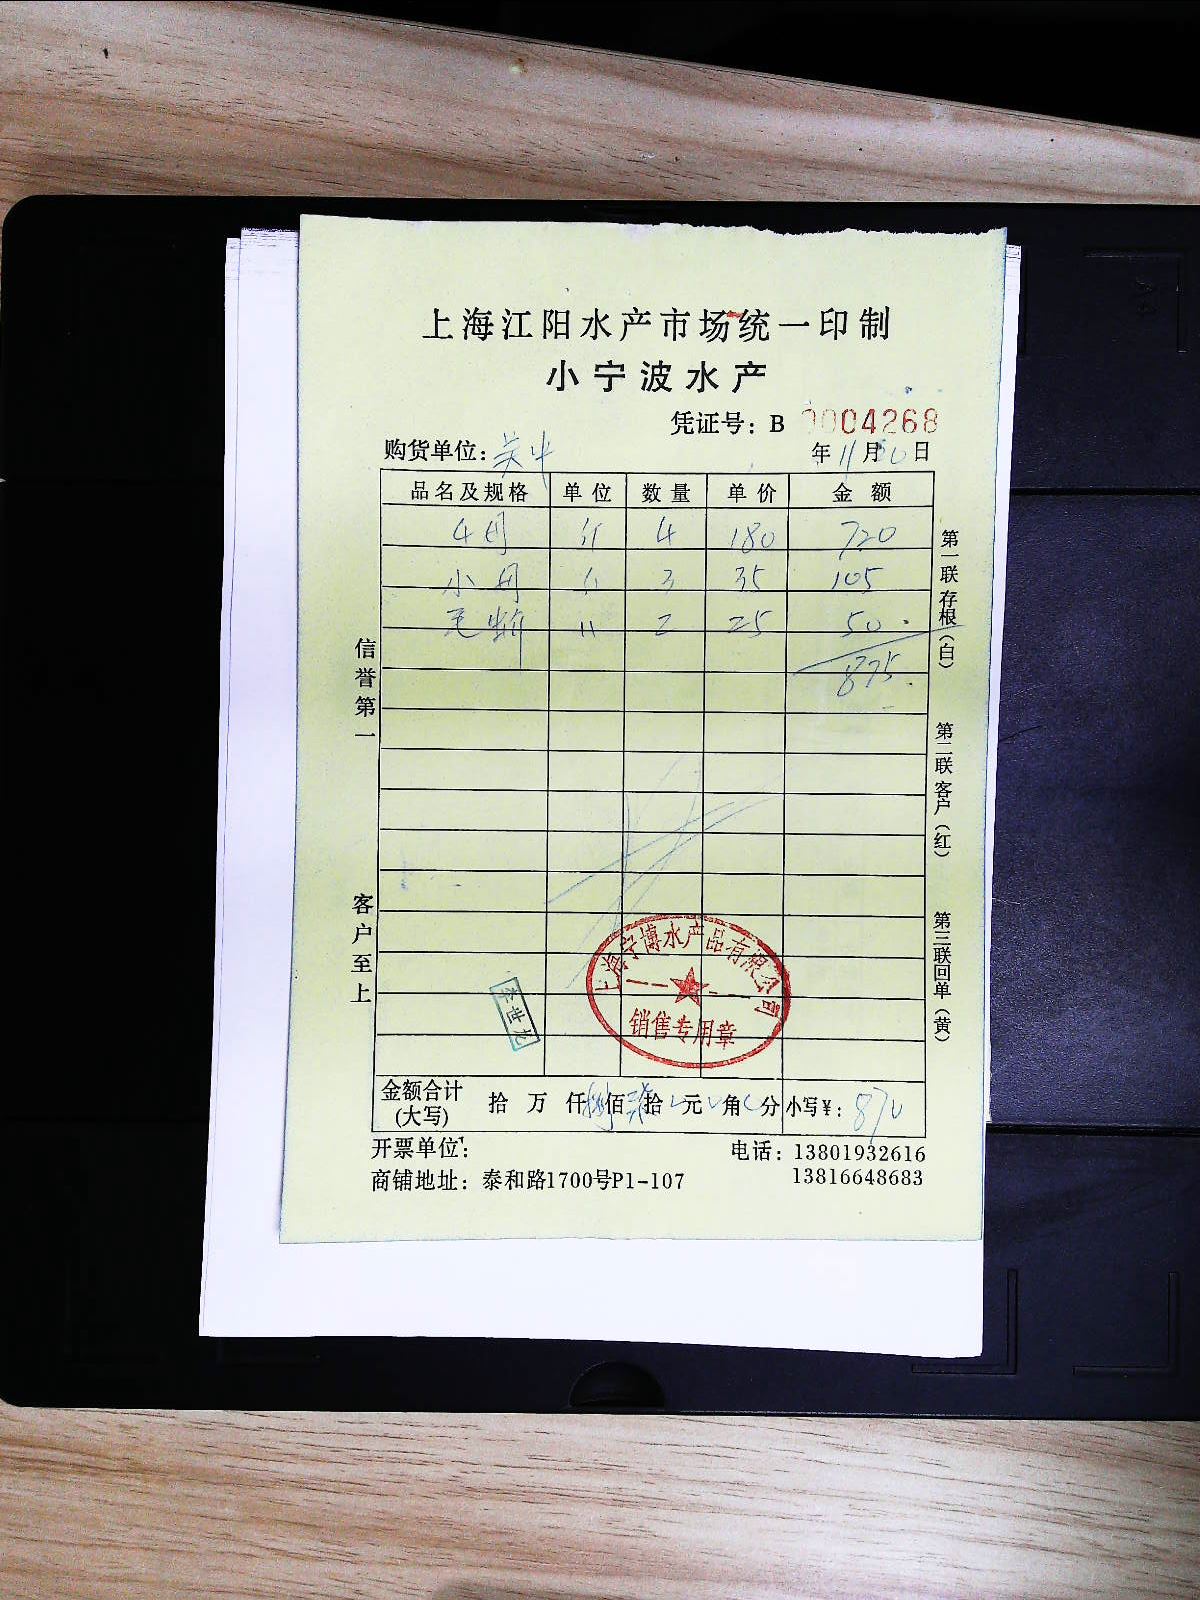 上海江阳水产市场统一印制
小宁波水产
凭证号：B 0004268
购货单位：
年11月30日
品名及规格 单位 数量 单价 金额
4 180 720
小 3 35 105
毛蚶 2 25 50
875
信誉第一
客户至上
第一联存根（白）
第二联客户（红）
第三联回单（黄）
上海宁博水产品有限公司
销售专用章
李世龙
金额合计(大写) 拾万仟捌佰柒拾元角分 小写¥：870
开票单位：
电话：13801932616
商铺地址：泰和路1700号P1-107
13816648683